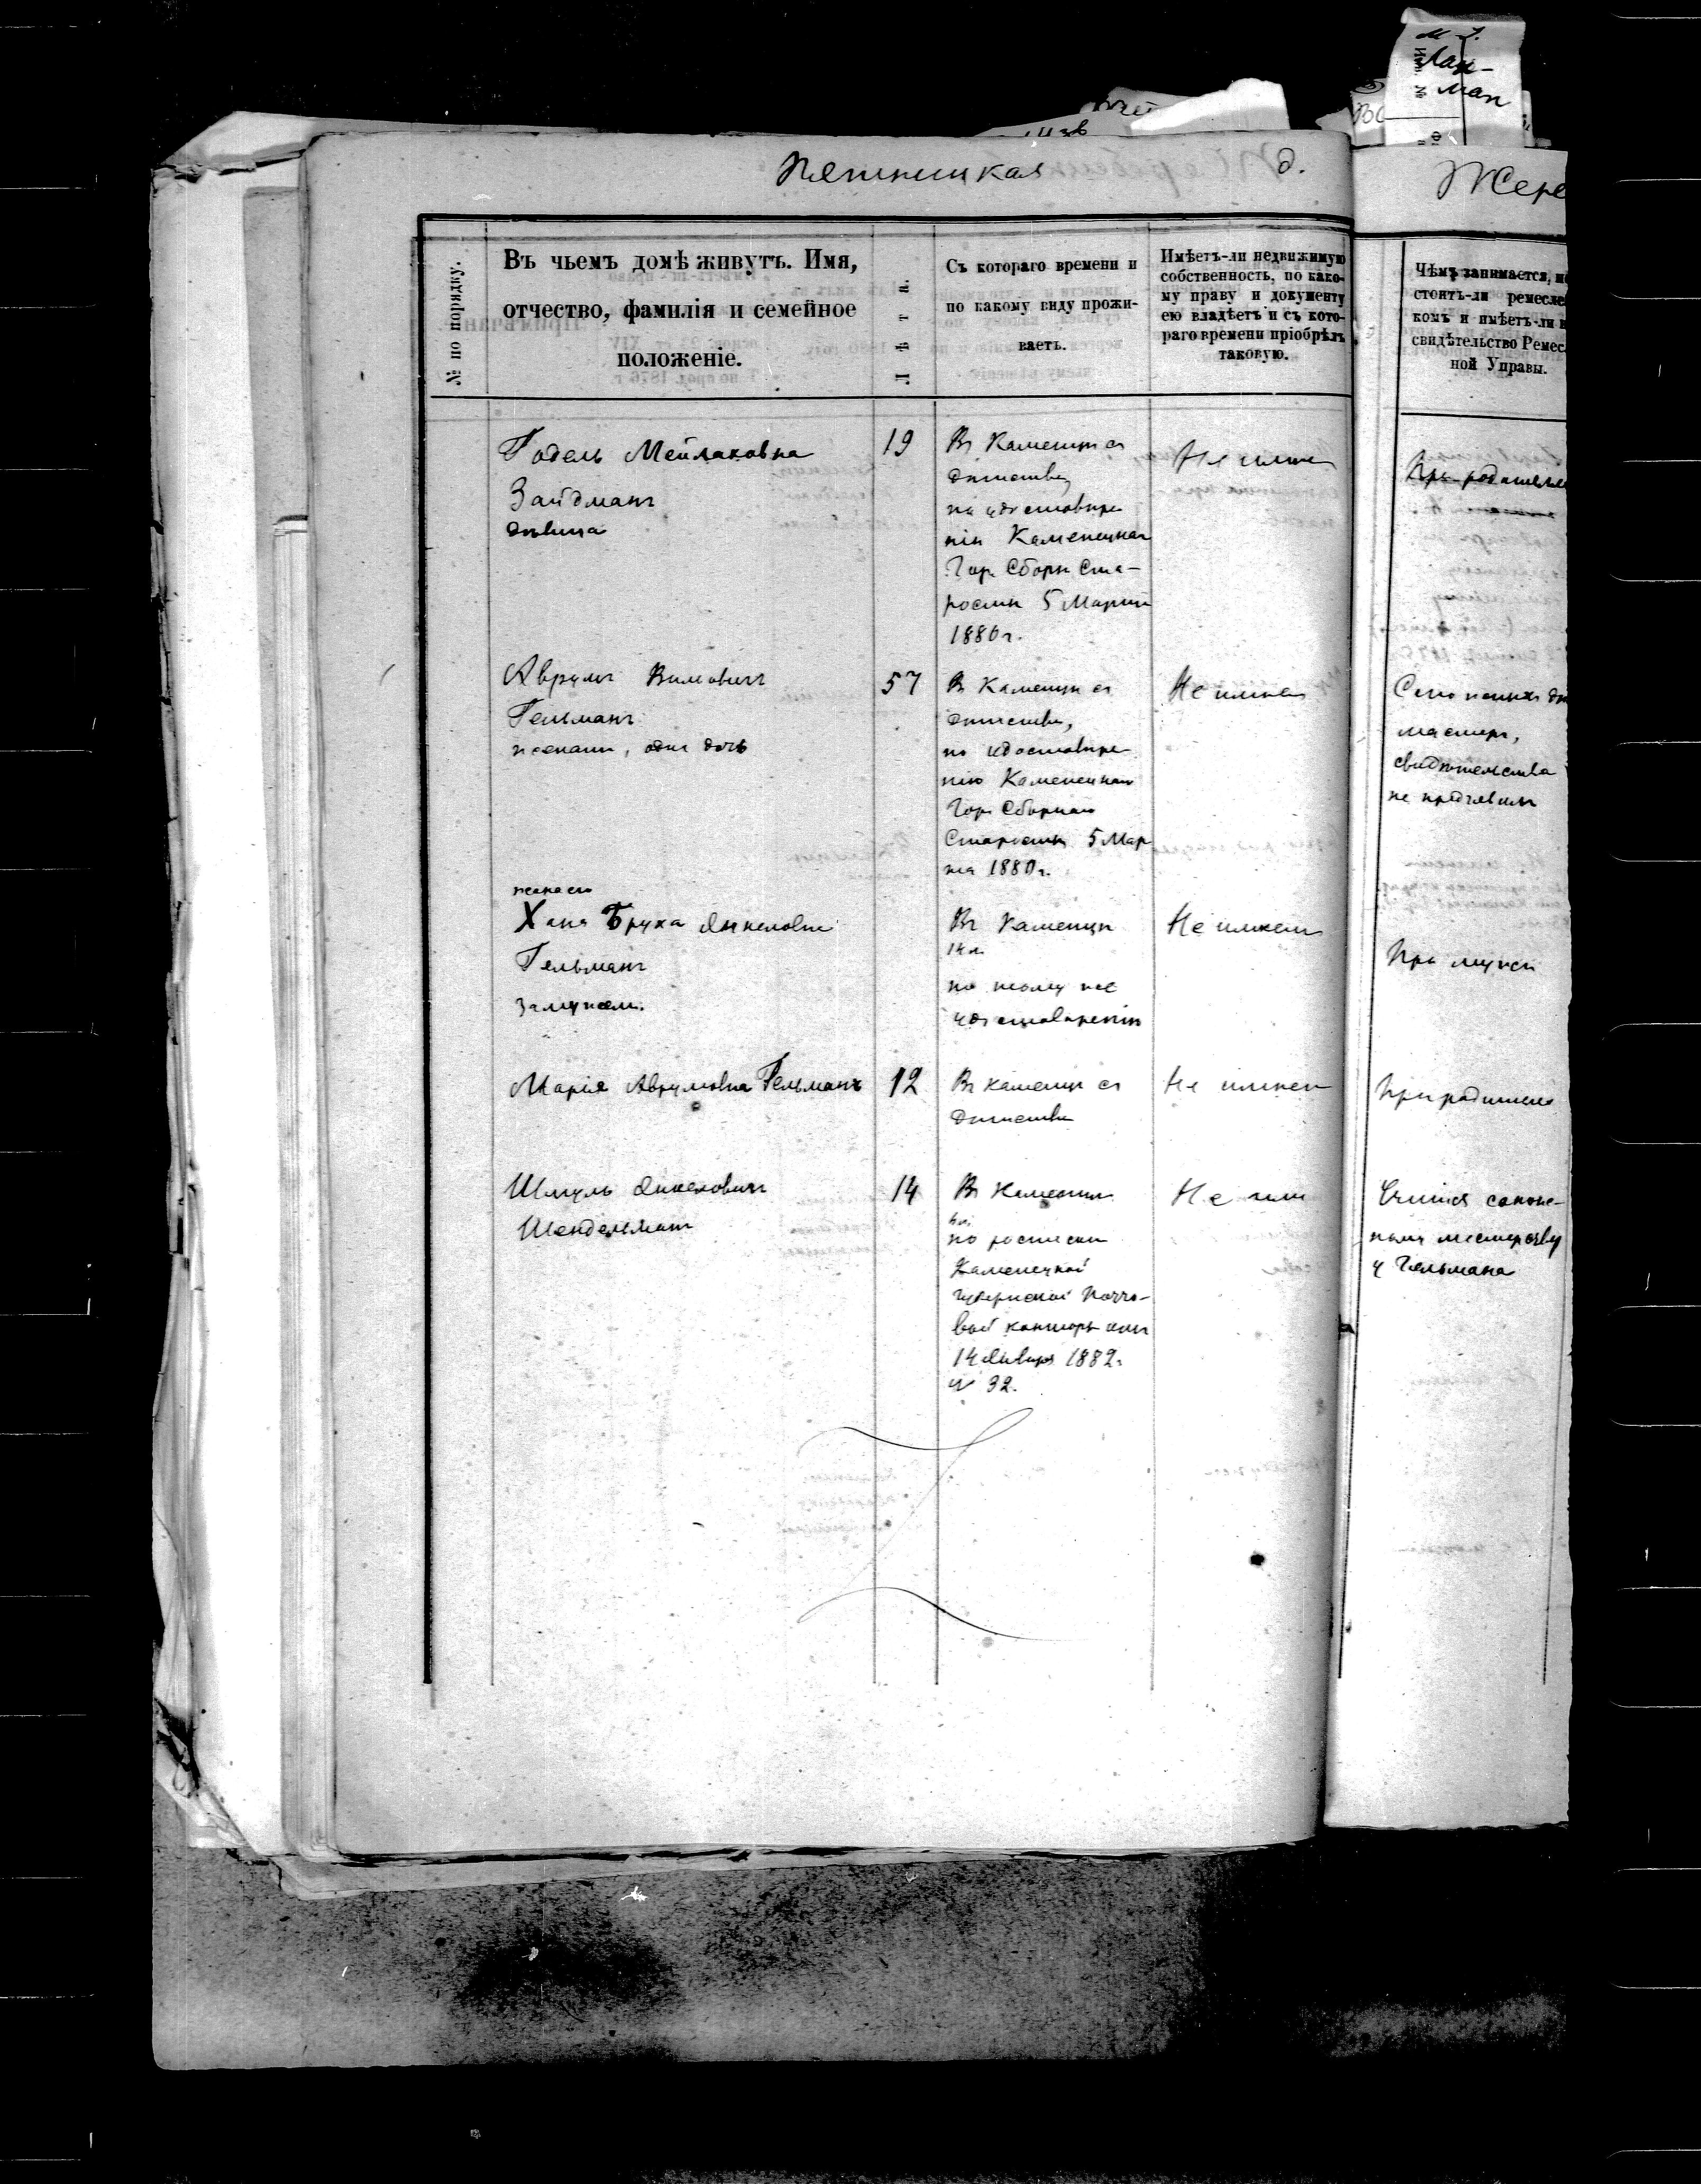 М-Я.
Лах-
ман
Пятницкая д.
Жере
№ по порядку.
Въ чьемъ домѣ живутъ. Имя,
отчество, фамилія и семейное
положеніе.
Лѣта.
Съ котораго времени и
по какому виду прожи-
ваетъ.
Имѣетъ-ли недвижимую
собственность, по како-
му праву и документу
ею владѣетъ и съ кото-
раго времени пріобрѣлъ
таковую.
Чѣмъ занимается,
стоитъ-ли ремесле
комъ и имѣетъ-ли
свидѣтельство Ремес
ной Управы.
Годель Мейлаховна
Зайдманъ
дѣвица
19
Въ Каменцѣ съ
дѣтства,
по удостовѣре
нію Каменецкаго
Гор. Сборн. Ста-
росты 5 Марта
1880 г.
Не имѣетъ
При родителя
Аврумъ Вимовичъ
Гельманъ
женатъ, одна дочь
57
Въ Каменцѣ съ
дѣтства,
по удостовѣре
нію Каменецкаго
Гор. Сборнаго
Старосты 5 Мар
та 1880 г.
Не имѣетъ
мастеръ,
свидѣтельства
не предъявилъ
жена его
Хана Бруха Янкеловна
Гельманъ
замужем.
Въ Каменцѣ
14 л.
по тому же
удостовѣренію
Не имѣетъ
При мужѣ
Марія Аврумовна Гельманъ
12
Въ Каменцѣ съ
дѣтства
Не имѣетъ
При родителе
Шмуль Янкеловичъ
Шендельманъ
14
Въ Каменцѣ
по роспискѣ
Каменецкой
Губернской Почто-
вой конторы отъ
14 Января 1882 г.
№ 32.
Не имѣ
Учится сапож-
ному мастерству
у Гельмана